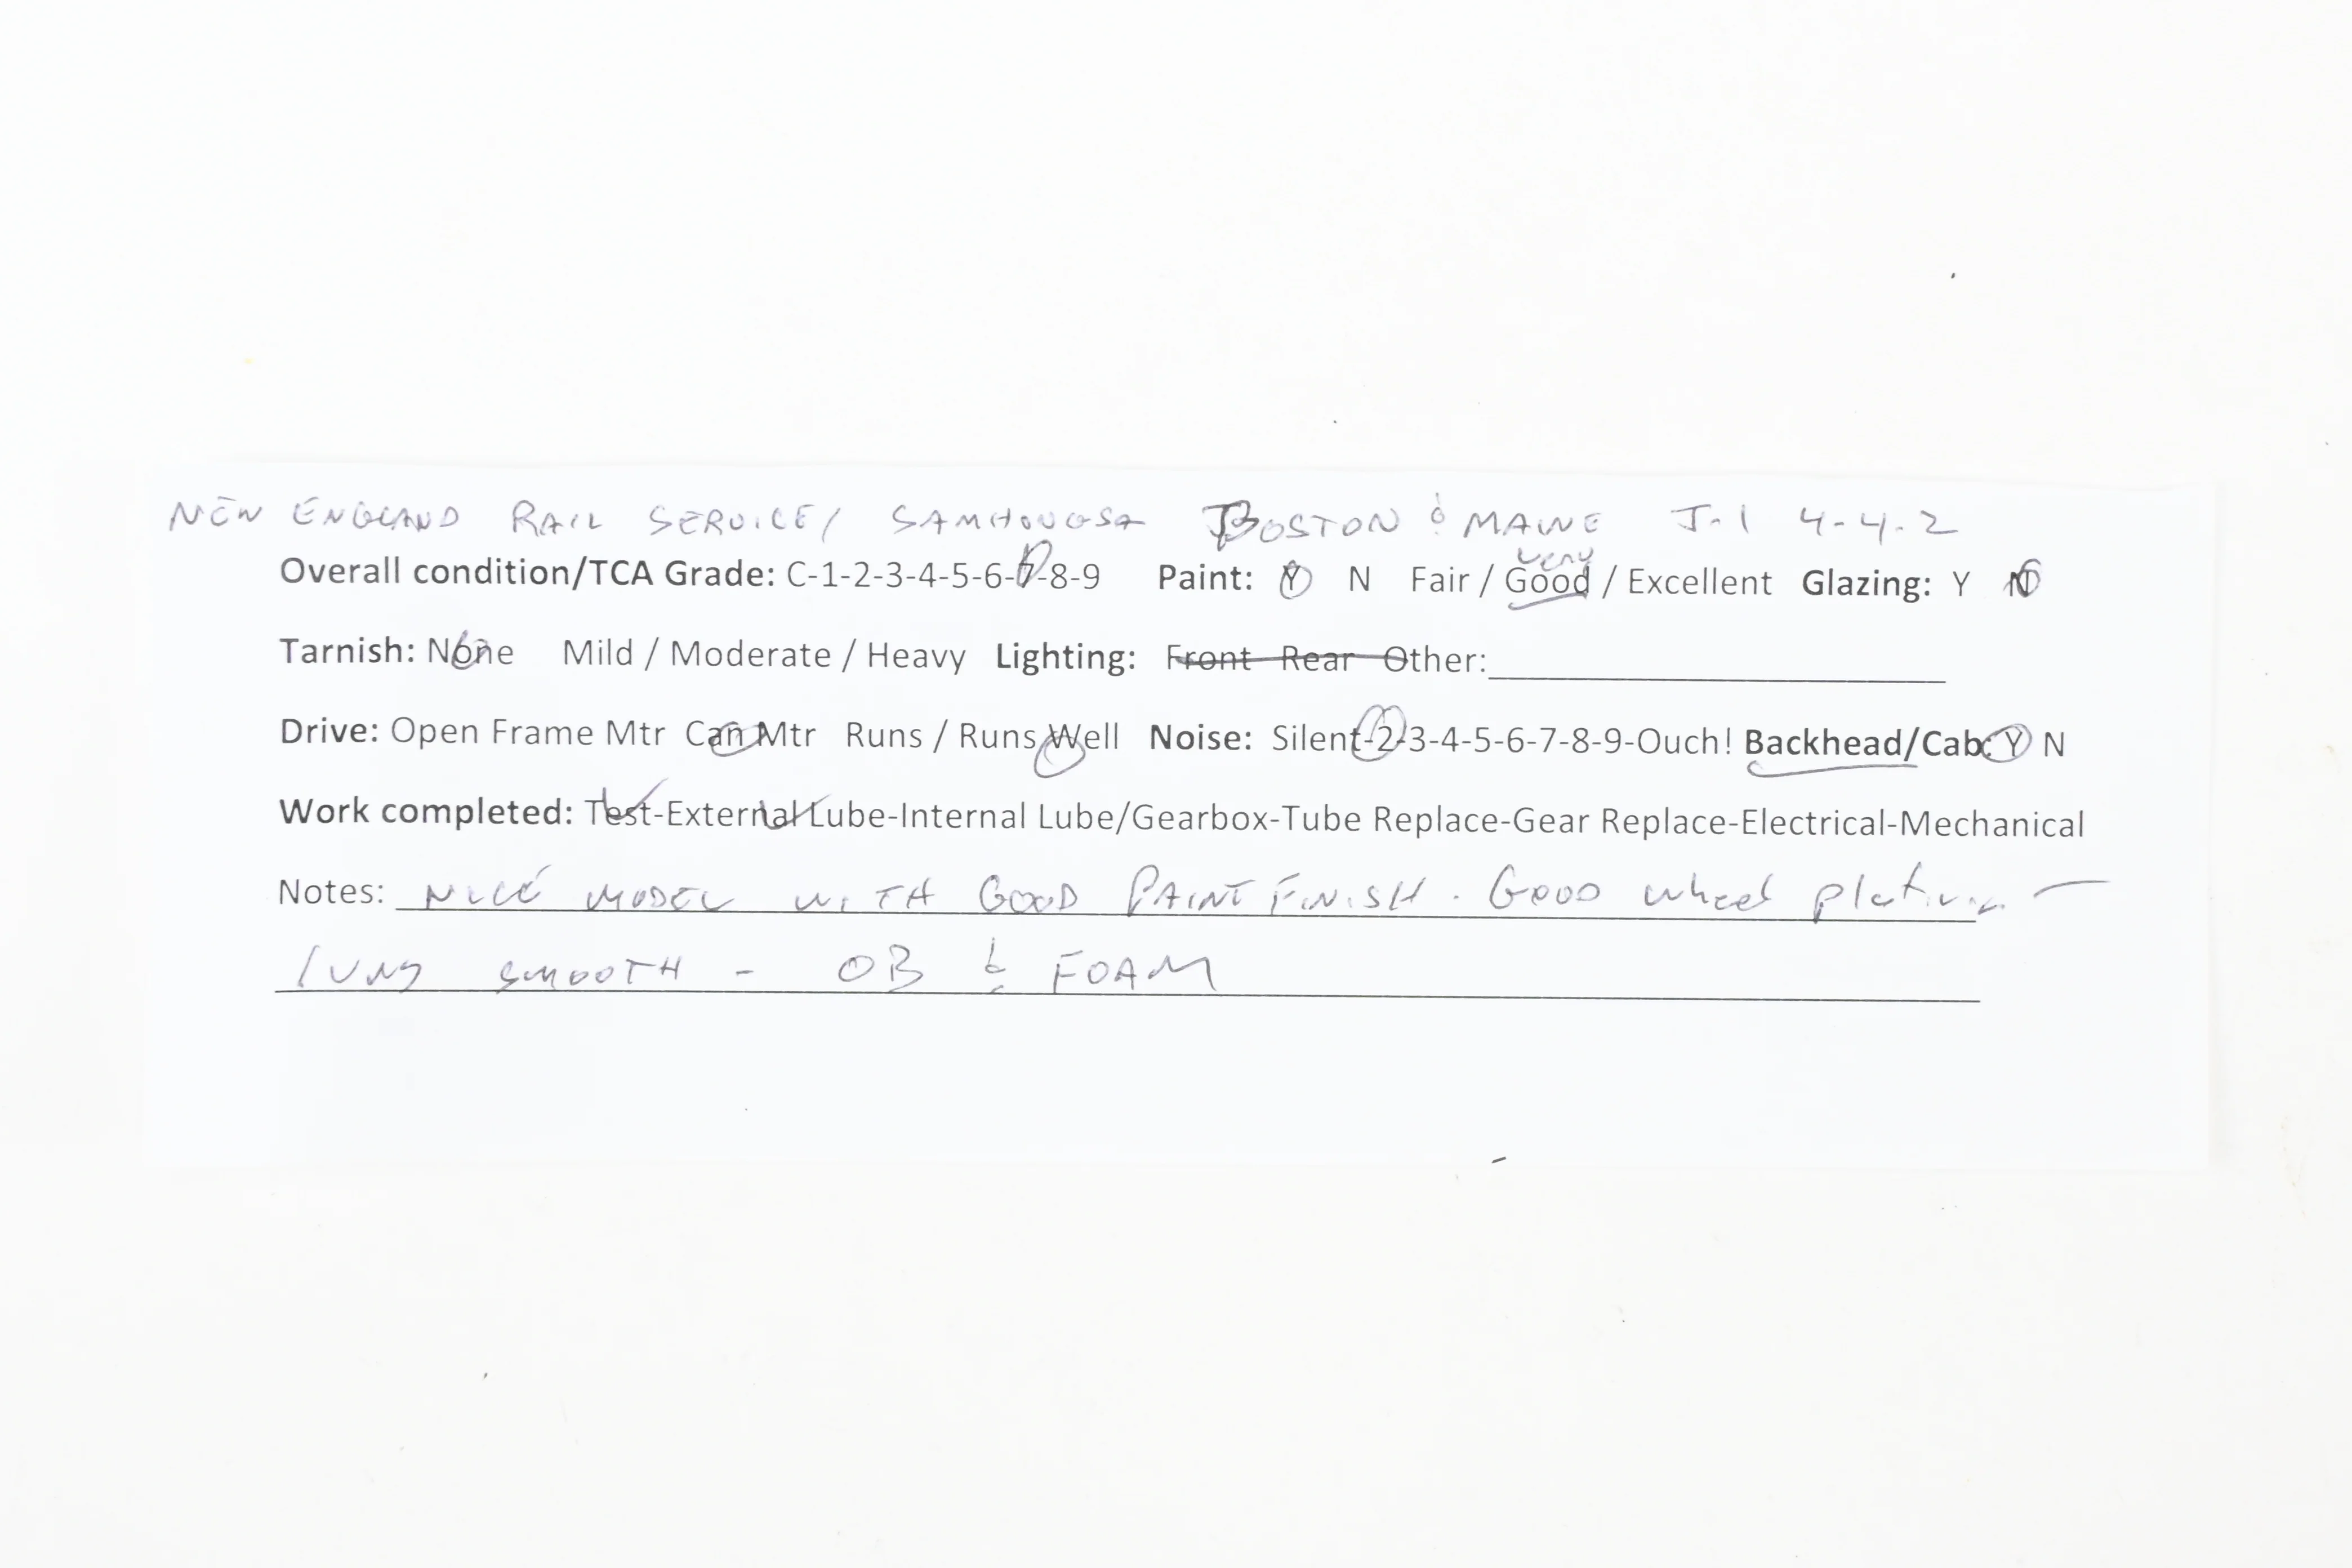 NEW ENGLAND RAIL SERVICE/ SAMHONGSA BOSTON & MAINE J-1 4-4-2
very
Overall condition/TCA Grade: C-1-2-3-4-5-6-7-8-9 Paint: Y N Fair / Good / Excellent Glazing: Y N
Tarnish: None Mild / Moderate / Heavy Lighting: Front Rear Other:
Drive: Open Frame Mtr Can Mtr Runs / Runs Well Noise: Silent-2-3-4-5-6-7-8-9-Ouch! Backhead/Cab: Y N
Work completed: Test-External Lube-Internal Lube/Gearbox-Tube Replace-Gear Replace-Electrical-Mechanical
Notes: NICE MODEL WITH GOOD PAINT FINISH. GOOD wheel plating -
runs SMOOTH - OB & FOAM